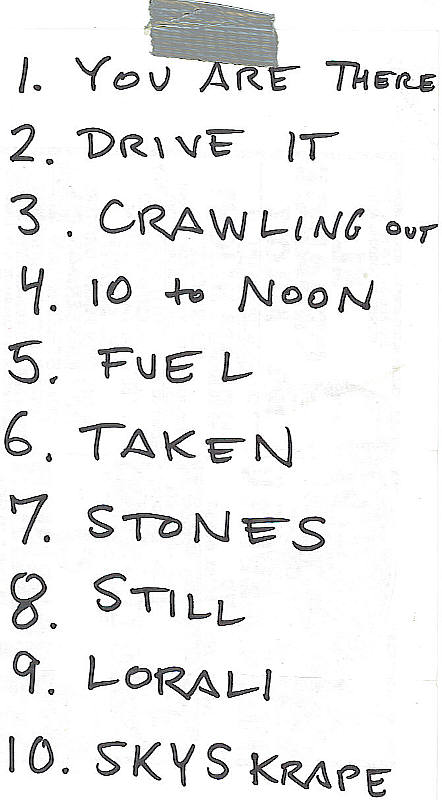 1. YOU ARE THERE
2. DRIVE IT
3. CRAWLING OUT
4. 10 to NOON
5. FUEL
6. TAKEN
7. STONES
8. STILL
9. LORALI
10. SKYSKRAPE